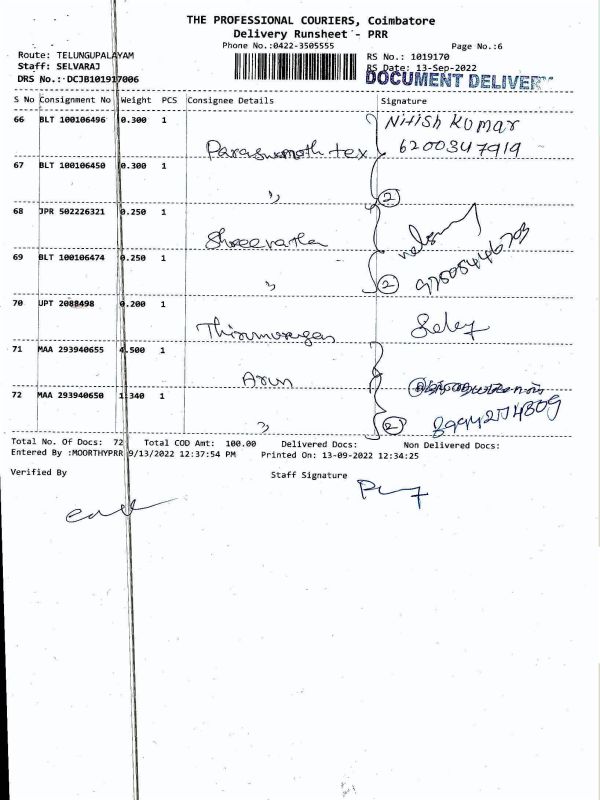 THE PROFESSIONAL COURIERS, Coimbatore
Delivery Runsheet - PRR
Phone No.:0422-3505555
Page No.:6
Route: TELUNGUPALAYAM
RS No.: 1019170
Staff: SELVARAJ
RS Date: 13-Sep-2022
DRS No.: DCJB101917006
DOCUMENT DELIVERY
S No Consignment No Weight PCS Consignee Details Signature
66 BLT 100106496 0.300 1 Nitish Kumar
Paraswanath tex 6200347919
67 BLT 100106450 0.300 1
,, 2
68 JPR 502226321 0.250 1
69 BLT 100106474 0.250 1
,, 2
70 UPT 2088498 0.200 1
Thirumurugan
71 MAA 293940655 4.500 1
Arun
72 MAA 293940650 1.340 1
,, 2
Total No. Of Docs: 72 Total COD Amt: 100.00 Delivered Docs: Non Delivered Docs:
Entered By :MOORTHYPRR 9/13/2022 12:37:54 PM Printed On: 13-09-2022 12:34:25
Verified By Staff Signature